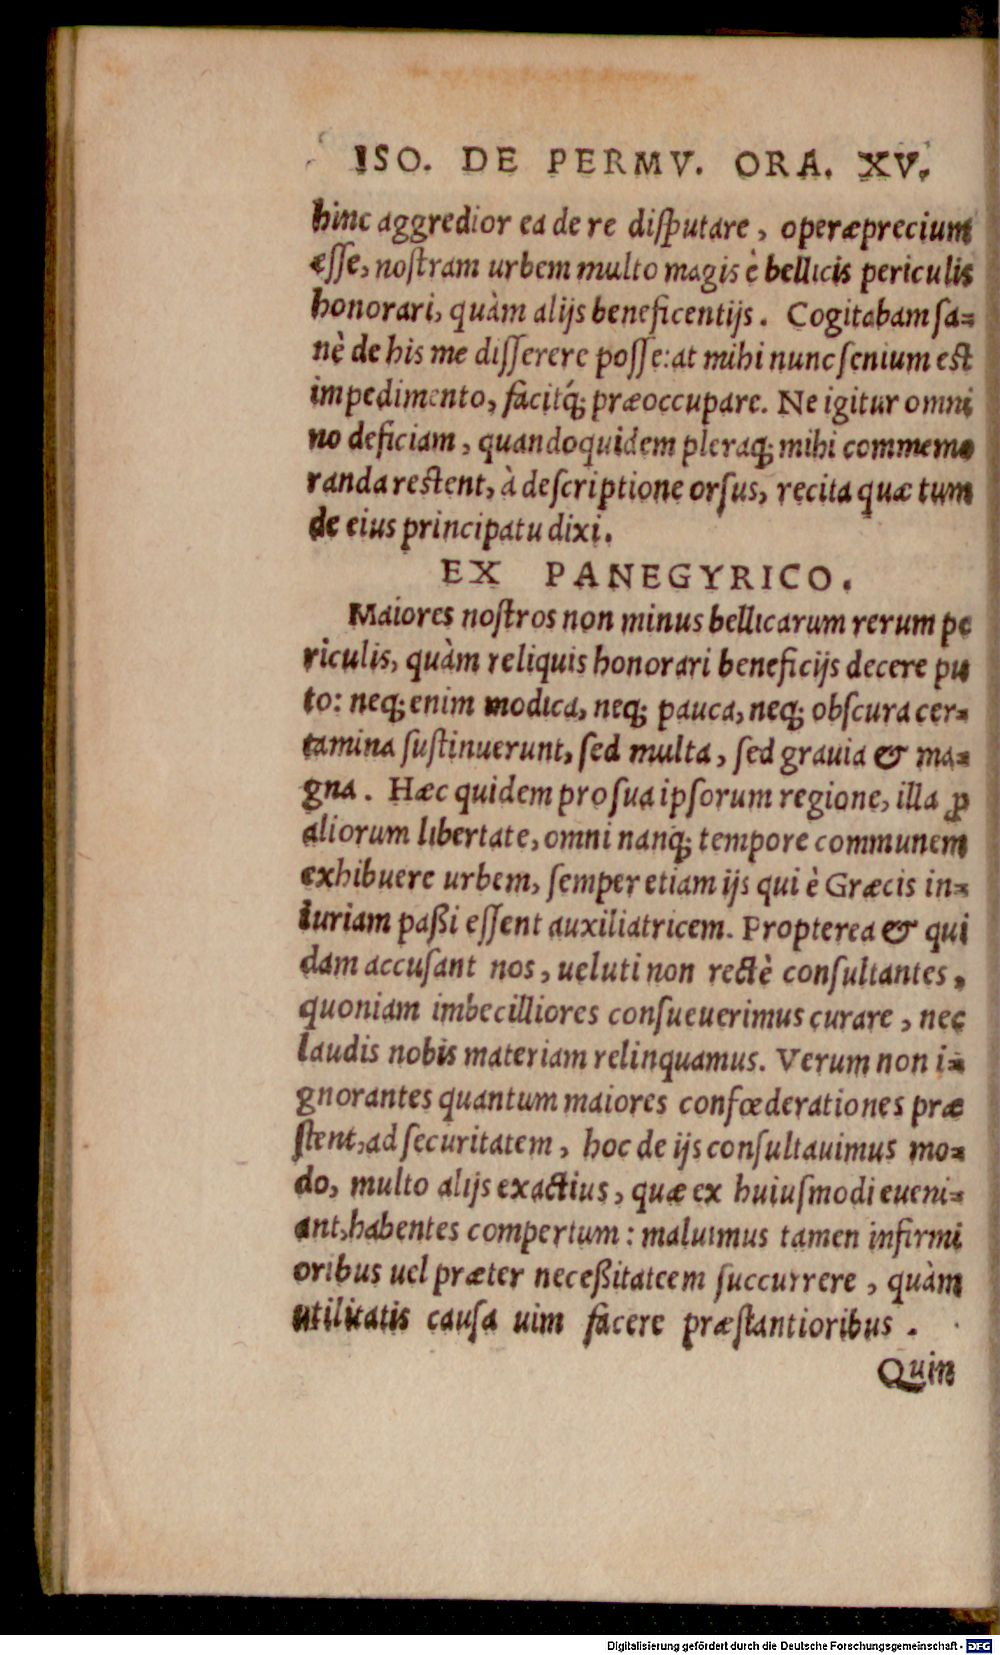 ISO. DE PERMV. ORA. XV.
hinc aggredior ea de re diſputare, operæprecium
eſſe, noſtram urbem multo magis è bellicis periculis
honorari, quàm alijs beneficentijs. Cogitabam ſa-
nè de his me diſſerere poſſe: at mihi nunc ſenium est
impedimento, facitq́; præoccupare. Ne igitur omni
no deficiam, quandoquidem pleraq; mihi commemo
randa restent, à deſcriptione orſus, recita quæ tum
de eius principatu dixi.
EX PANEGYRICO.
Maiores noſtros non minus bellicarum rerum pe
riculis, quàm reliquis honorari beneficijs decere pu
to: neq; enim modica, neq; pauca, neq; obſcura cer-
tamina ſuſtinuerunt, ſed multa, ſed grauia & ma-
gna. Hæc quidem pro ſua ipſorum regione, illa ꝓ
aliorum libertate, omni nanq; tempore communem
exhibuere urbem, ſemper etiam ijs qui è Græcis in-
iuriam paßi eſſent auxiliatricem. Propterea & qui
dam accuſant nos, ueluti non rectè conſultantes,
quoniam imbecilliores conſueuerimus curare, nec
laudis nobis materiam relinquamus. Verum non i-
gnorantes quantum maiores confœderationes præ
ſtent, ad ſecuritatem, hoc de ijs conſultauimus mo-
do, multo alijs exactius, quæ ex huiuſmodi eueni-
ant, habentes compertum: maluimus tamen infirmi
oribus uel præter neceßitatcem ſuccurrere, quàm
utilitatis cauſa uim facere præſtantioribus.
Quin
Digitalisierung gefördert durch die Deutsche Forschungsgemeinschaft - DFG